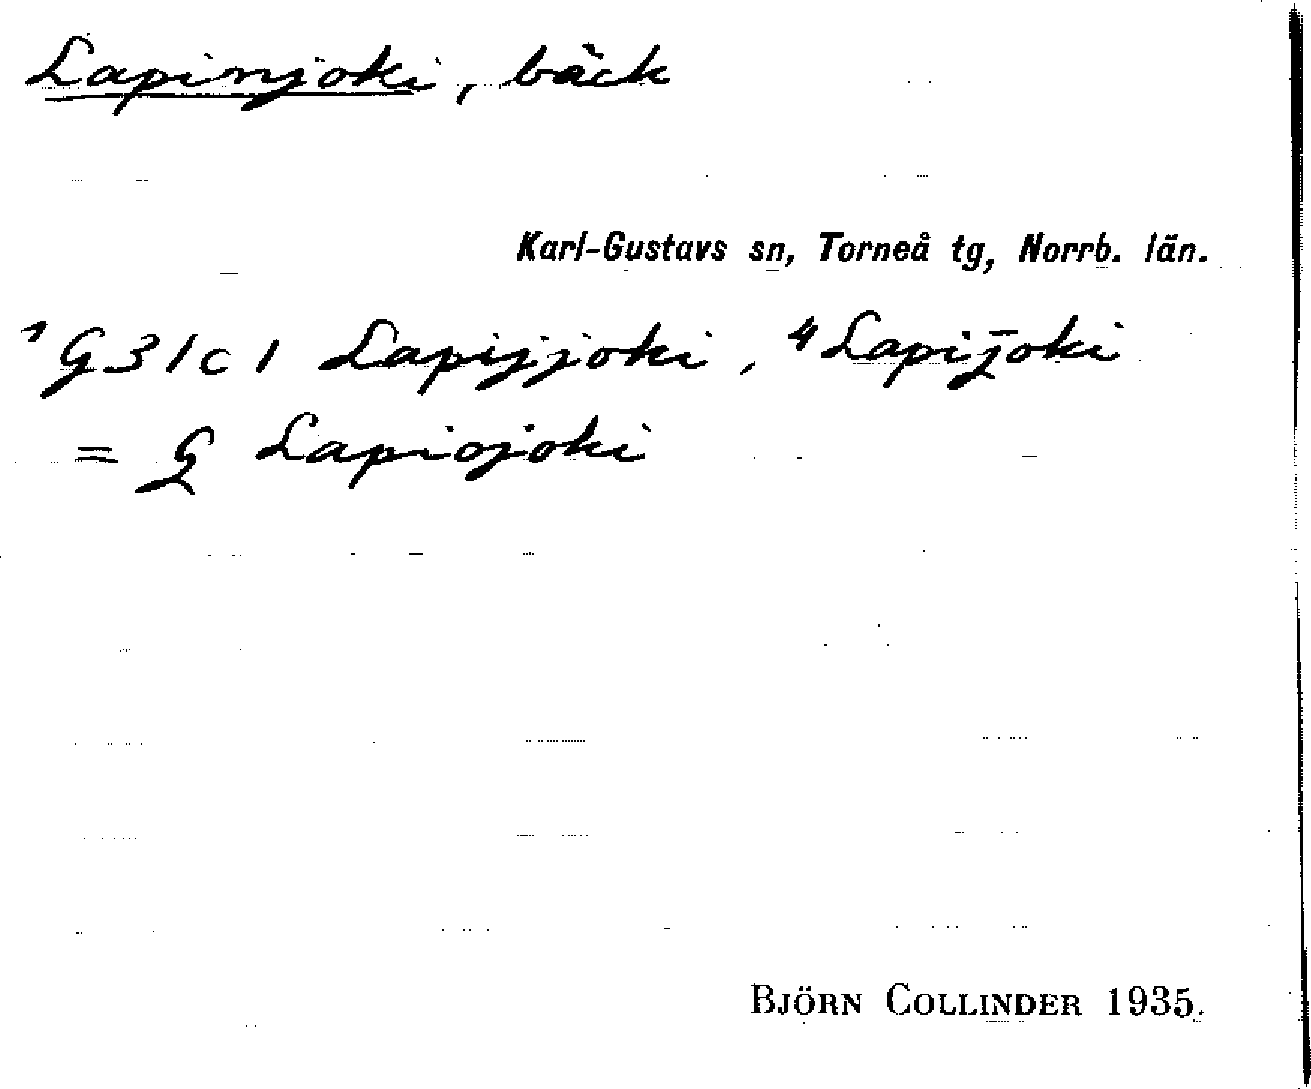 Lapinjoki, bäck
Karl-Gustavs sn, Torneå tg, Norrb. län.
¹G 31c1 Lapijjoki, ⁴Lapij̄oki
= G Lapiojoki
BJÖRN COLLINDER 1935.